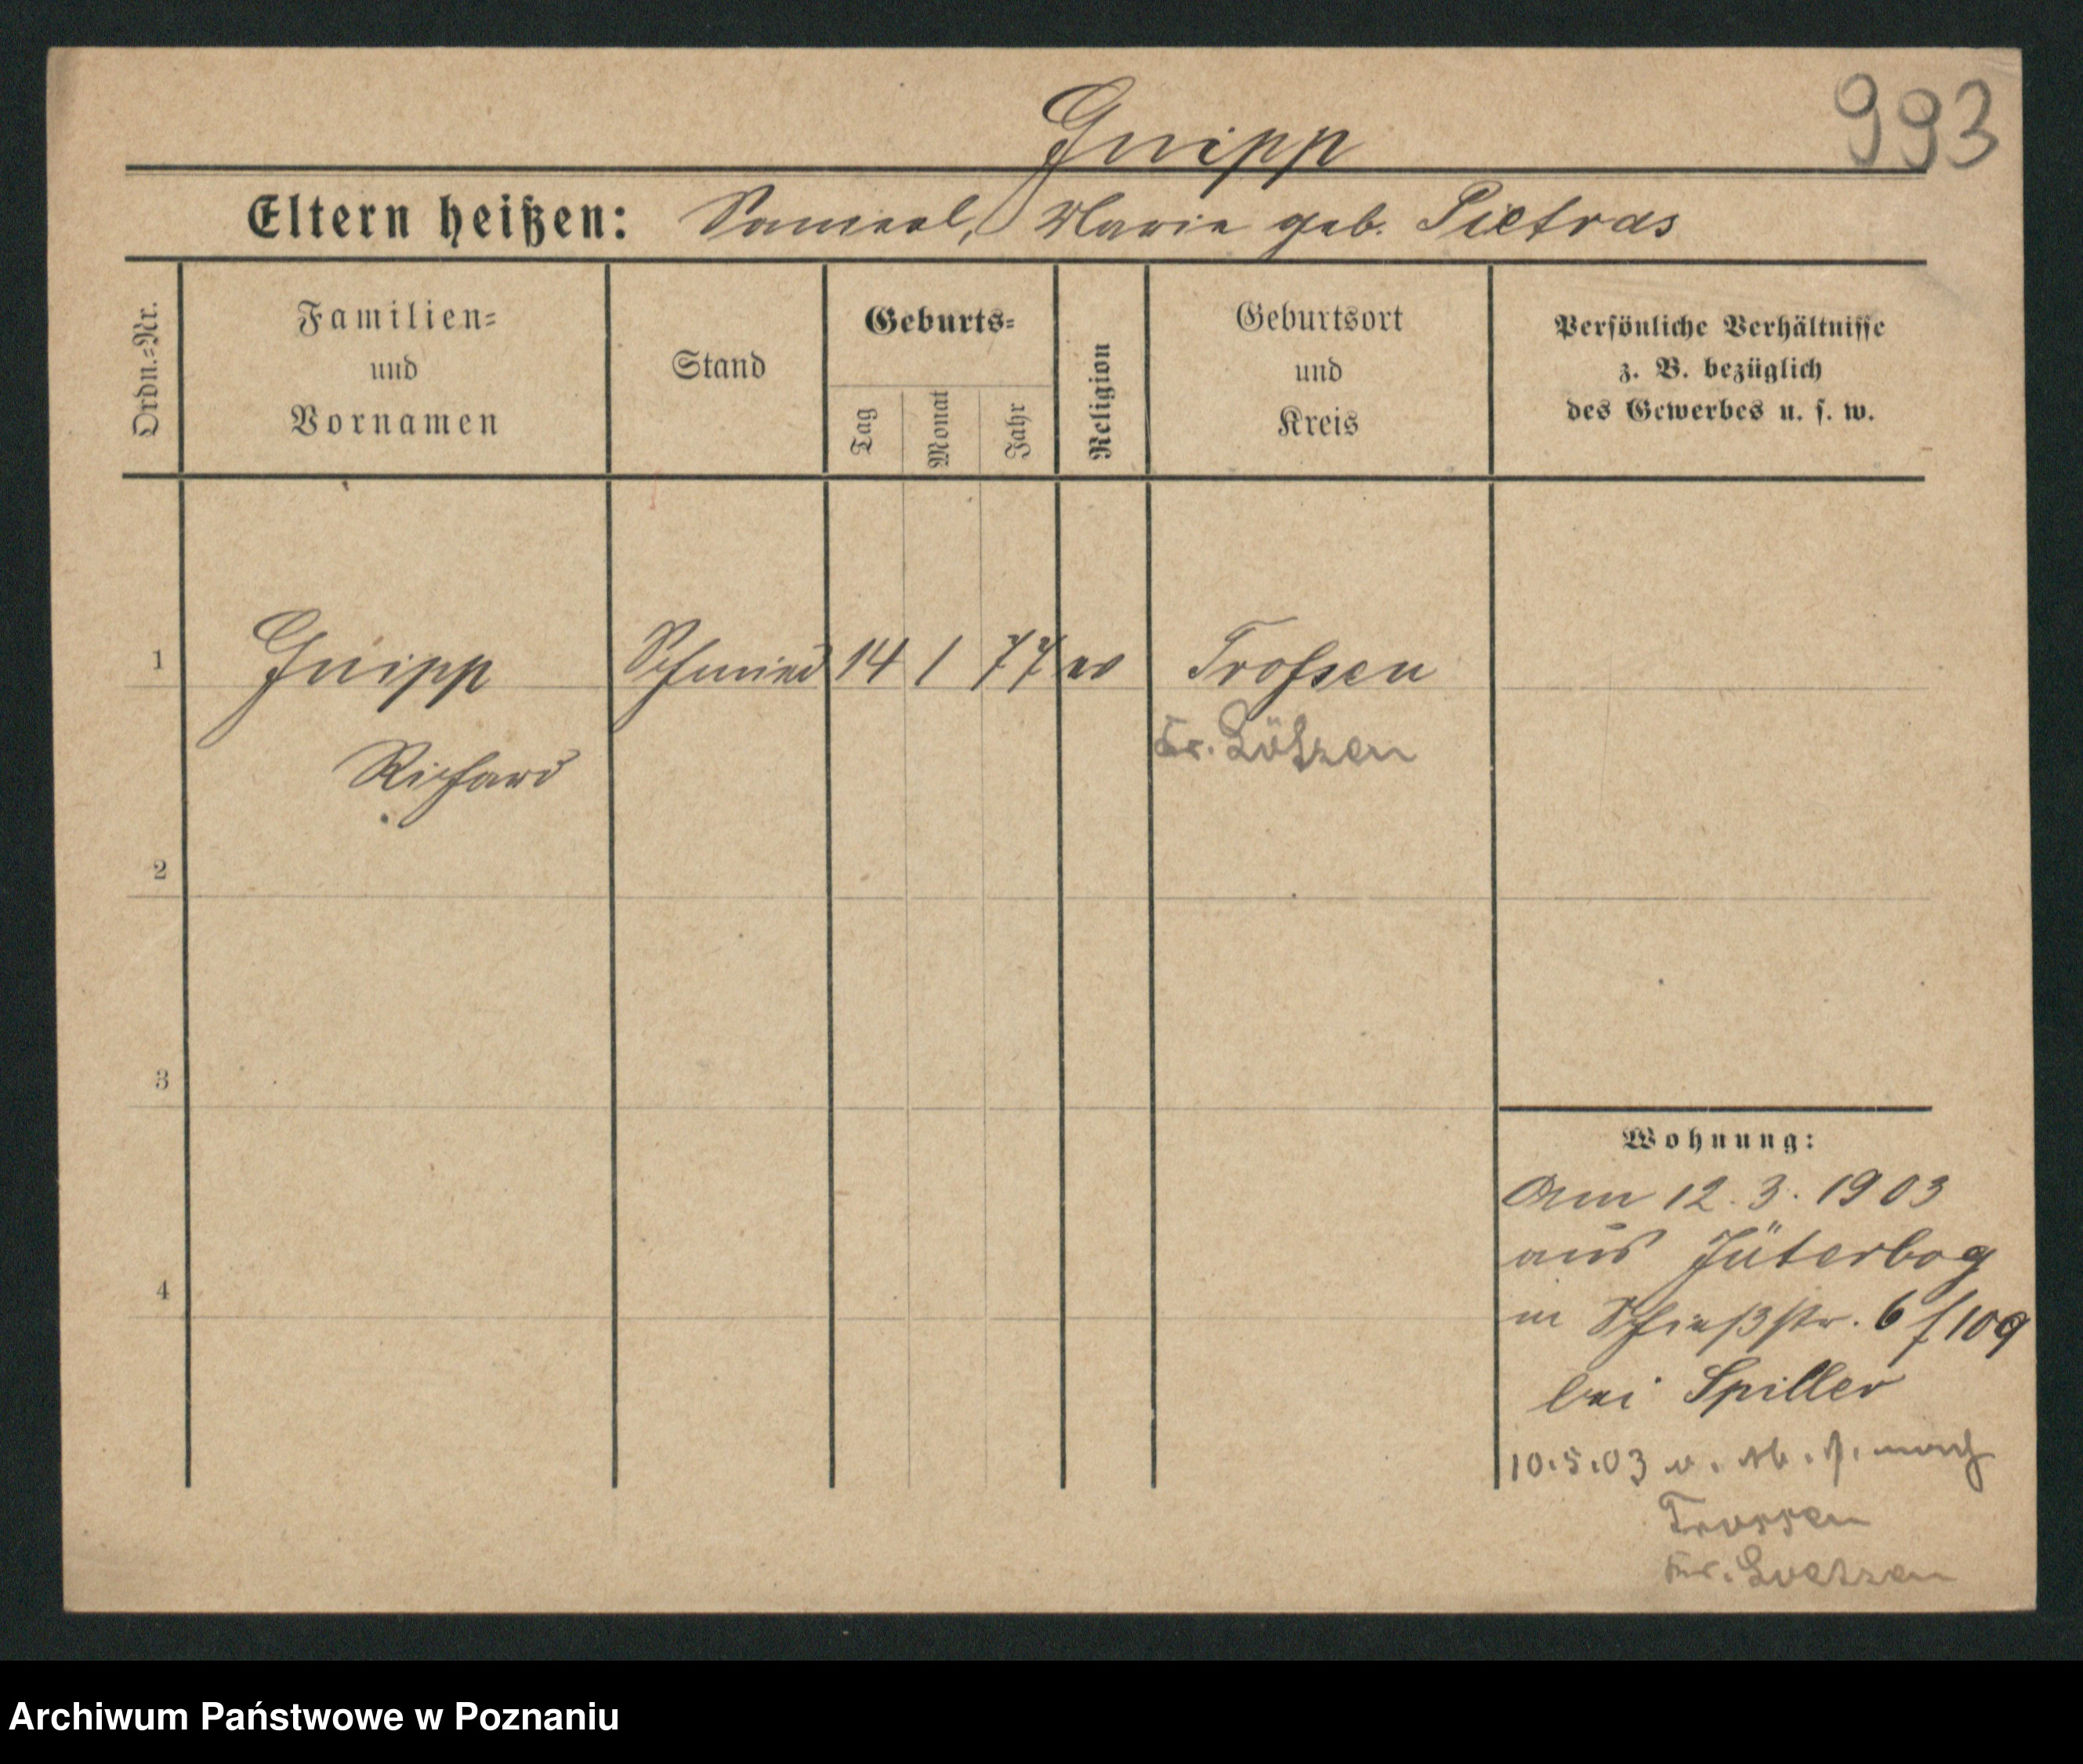 993
Gnipp
Eltern heißen: Samuel, Marie geb. Pietras
Ordn.=Nr.
Familien=
und
Vornamen
Stand
Geburts=
Tag
Monat
Jahr
Religion
Geburtsort
und
Kreis
Persönliche Verhältnisse
z. B. bezüglich
des Gewerbes u. s. w.
1 Gnipp Schmied 14 1 77 ev Trossen
Kr. Lötzen
Richard
2
3
4
Wohnung:
Am 12. 3. 1903
aus Jüterbog
in Schießstr. 6 f 109
bei Spiller
10.5.03 v. Ab. nach
Trossen
Kr. Loetzen
Archiwum Państwowe w Poznaniu